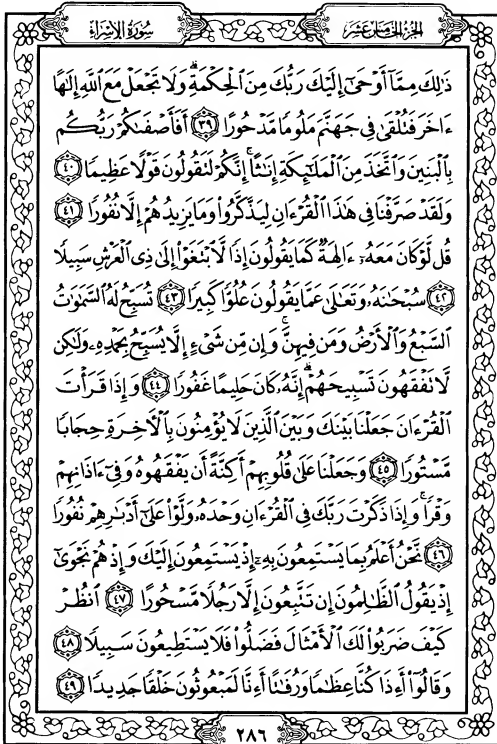 الجزء الخامس عشر
سورة الإسراء
ذَٰلِكَ مِمَّآ أَوْحَىٰٓ إِلَيْكَ رَبُّكَ مِنَ ٱلْحِكْمَةِ ۗ وَلَا تَجْعَلْ مَعَ ٱللَّهِ إِلَٰهًا
ءَاخَرَ فَتُلْقَىٰ فِى جَهَنَّمَ مَلُومًا مَّدْحُورًا ۝٣٩ أَفَأَصْفَىٰكُمْ رَبُّكُم
بِٱلْبَنِينَ وَٱتَّخَذَ مِنَ ٱلْمَلَٰٓئِكَةِ إِنَٰثًا ۚ إِنَّكُمْ لَتَقُولُونَ قَوْلًا عَظِيمًا ۝٤٠
وَلَقَدْ صَرَّفْنَا فِى هَٰذَا ٱلْقُرْءَانِ لِيَذَّكَّرُوا۟ وَمَا يَزِيدُهُمْ إِلَّا نُفُورًا ۝٤١
قُل لَّوْ كَانَ مَعَهُۥٓ ءَالِهَةٌ كَمَا يَقُولُونَ إِذًا لَّٱبْتَغَوْا۟ إِلَىٰ ذِى ٱلْعَرْشِ سَبِيلًا
۝٤٢ سُبْحَٰنَهُۥ وَتَعَٰلَىٰ عَمَّا يَقُولُونَ عُلُوًّا كَبِيرًا ۝٤٣ تُسَبِّحُ لَهُ ٱلسَّمَٰوَٰتُ
ٱلسَّبْعُ وَٱلْأَرْضُ وَمَن فِيهِنَّ ۚ وَإِن مِّن شَىْءٍ إِلَّا يُسَبِّحُ بِحَمْدِهِۦ وَلَٰكِن
لَّا تَفْقَهُونَ تَسْبِيحَهُمْ ۗ إِنَّهُۥ كَانَ حَلِيمًا غَفُورًا ۝٤٤ وَإِذَا قَرَأْتَ
ٱلْقُرْءَانَ جَعَلْنَا بَيْنَكَ وَبَيْنَ ٱلَّذِينَ لَا يُؤْمِنُونَ بِٱلْءَاخِرَةِ حِجَابًا
مَّسْتُورًا ۝٤٥ وَجَعَلْنَا عَلَىٰ قُلُوبِهِمْ أَكِنَّةً أَن يَفْقَهُوهُ وَفِىٓ ءَاذَانِهِمْ
وَقْرًا ۚ وَإِذَا ذَكَرْتَ رَبَّكَ فِى ٱلْقُرْءَانِ وَحْدَهُۥ وَلَّوْا۟ عَلَىٰٓ أَدْبَٰرِهِمْ نُفُورًا
۝٤٦ نَّحْنُ أَعْلَمُ بِمَا يَسْتَمِعُونَ بِهِۦٓ إِذْ يَسْتَمِعُونَ إِلَيْكَ وَإِذْ هُمْ نَجْوَىٰٓ
إِذْ يَقُولُ ٱلظَّٰلِمُونَ إِن تَتَّبِعُونَ إِلَّا رَجُلًا مَّسْحُورًا ۝٤٧ ٱنظُرْ
كَيْفَ ضَرَبُوا۟ لَكَ ٱلْأَمْثَالَ فَضَلُّوا۟ فَلَا يَسْتَطِيعُونَ سَبِيلًا ۝٤٨
وَقَالُوٓا۟ أَءِذَا كُنَّا عِظَٰمًا وَرُفَٰتًا أَءِنَّا لَمَبْعُوثُونَ خَلْقًا جَدِيدًا ۝٤٩
٢٨٦